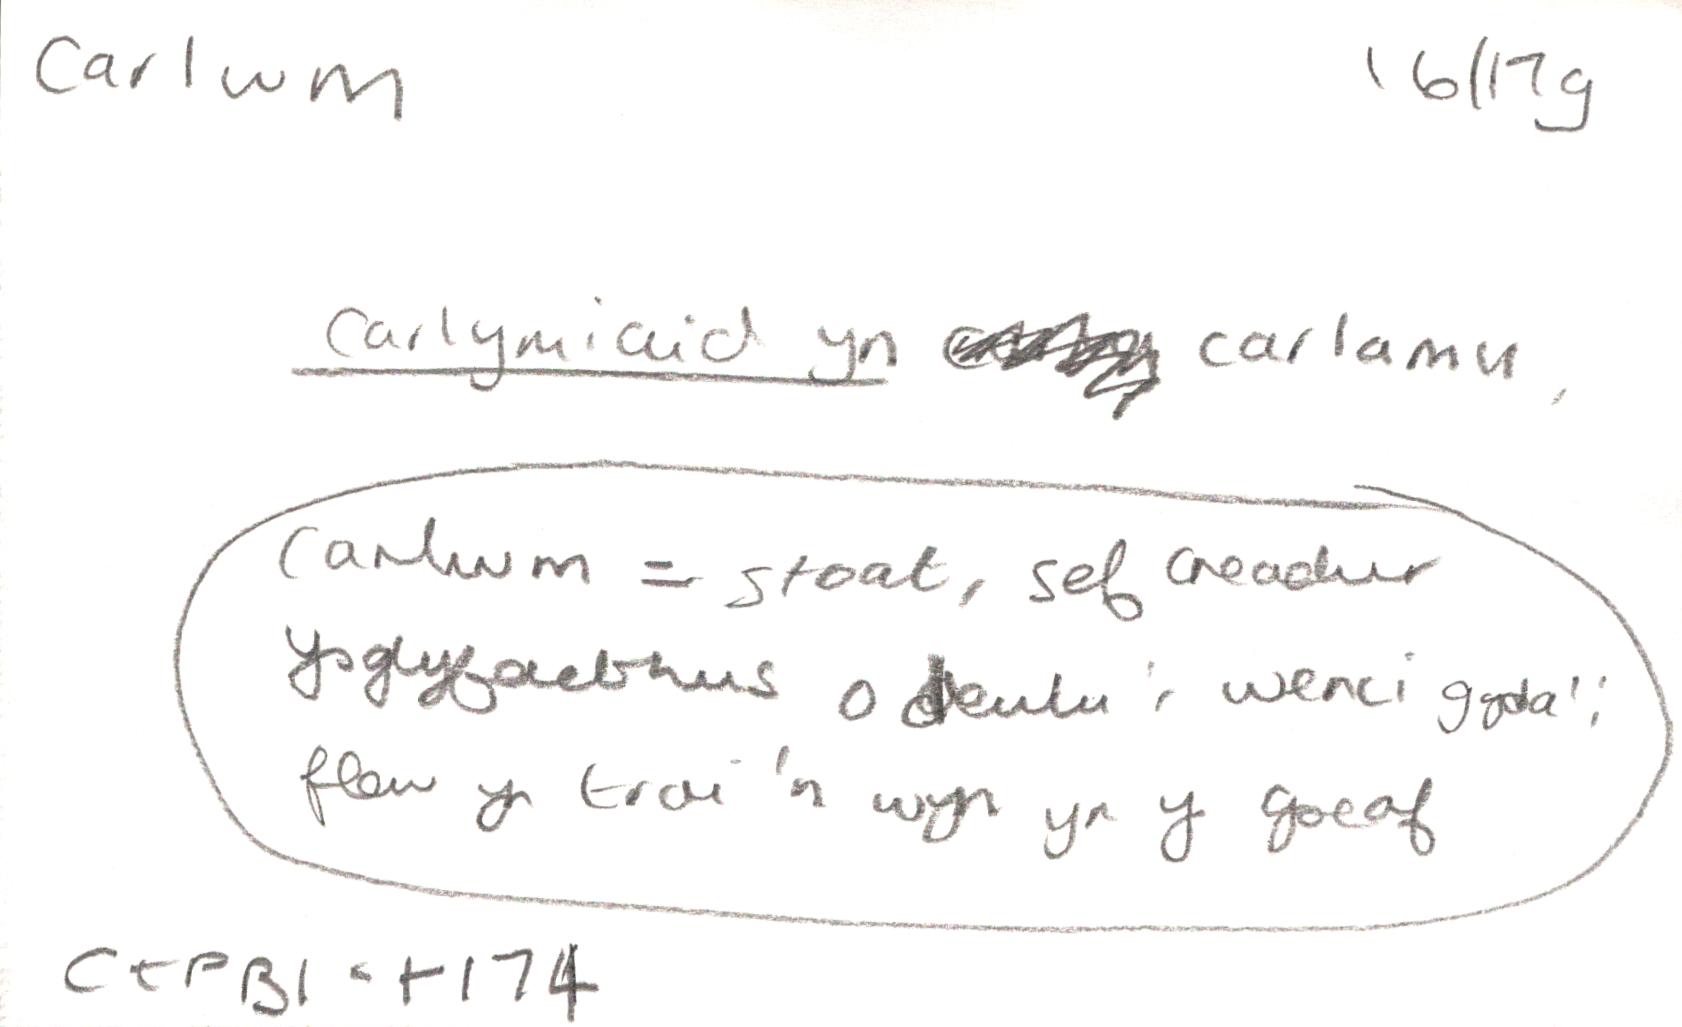 Carlwm 16/17g
Carlymiaid yn carlamu,
Carlwm = stoat, sef creadur
ysglyfaethus o deulu'r wenci gyda'i
flew yn troi'n wyn yn y gaeaf